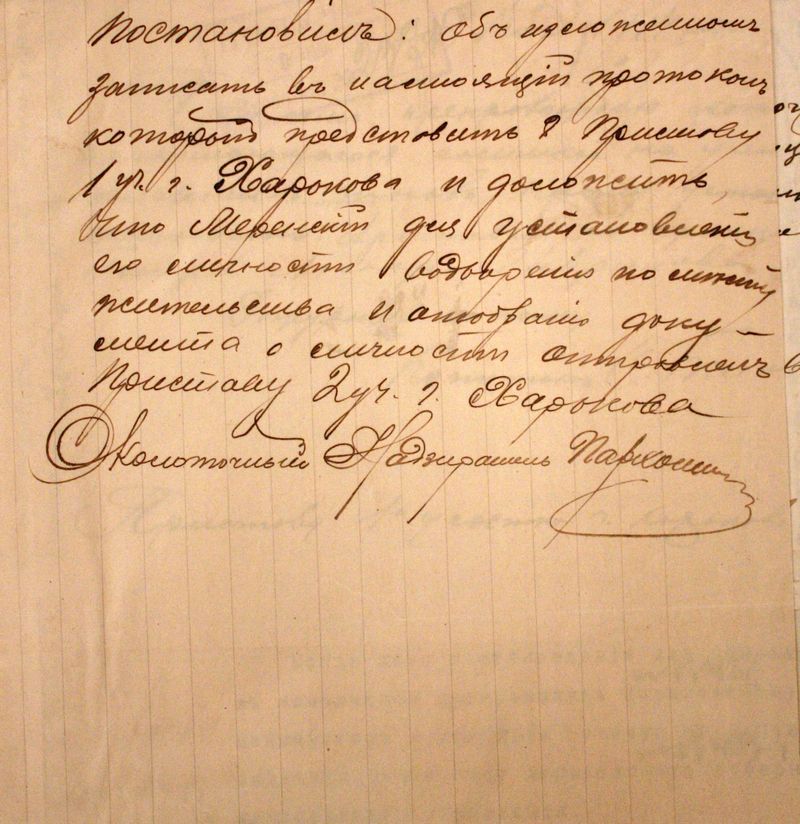 постановилъ: объ изложенномъ
записать въ настоящій протоколъ
который представить Г Приставу
1 уч. г. Харькова и доложить,
что для установленія
его личности водворенію по мѣсту
жительства и отобранію доку-
мента о личности отправленъ
Приставу 2 уч. г. Харькова
Околоточный Надзиратель